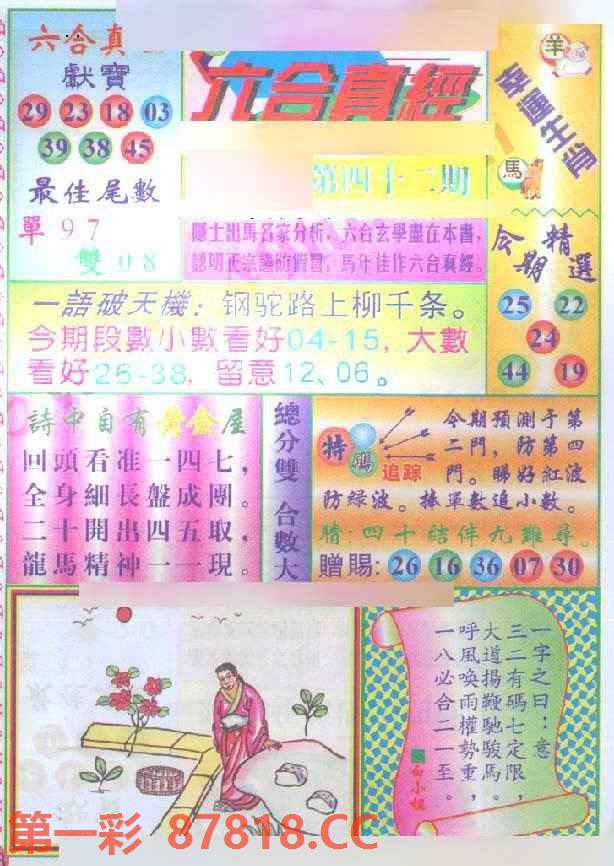 六合真
獻寶
29 23 18 03
39 38 45
最佳尾數
單 9 7
雙 0 8
六合真經
第四十二期
隱士出馬名家分析，六合玄學盡在本書，
認明正宗謹防假冒，馬年佳作六合真經。
羊
幸運生肖
馬
今期
精選
25 22
24
44 19
一語破天機：钢驼路上柳千条。
今期段數小數看好04-15，大數
看好26-38，留意12、06。
詩中自有黃金屋
回頭看准一四七，
全身細長盤成團。
二十開出四五取，
龍馬精神一一現。
總分雙
合數大
特碼
追踪
今期預測予第
二門，防第四
門。睇好紅波
防綠波。捧單數追小數。
猜：四十结伴九難尋。
贈賜：26 16 36 07 30
一字之曰：意
三二有碼七定限，
大道揚鞭馳駿馬。
呼風喚雨權勢重，
一八必合二一至。
白小姐
第一彩 87818.CC